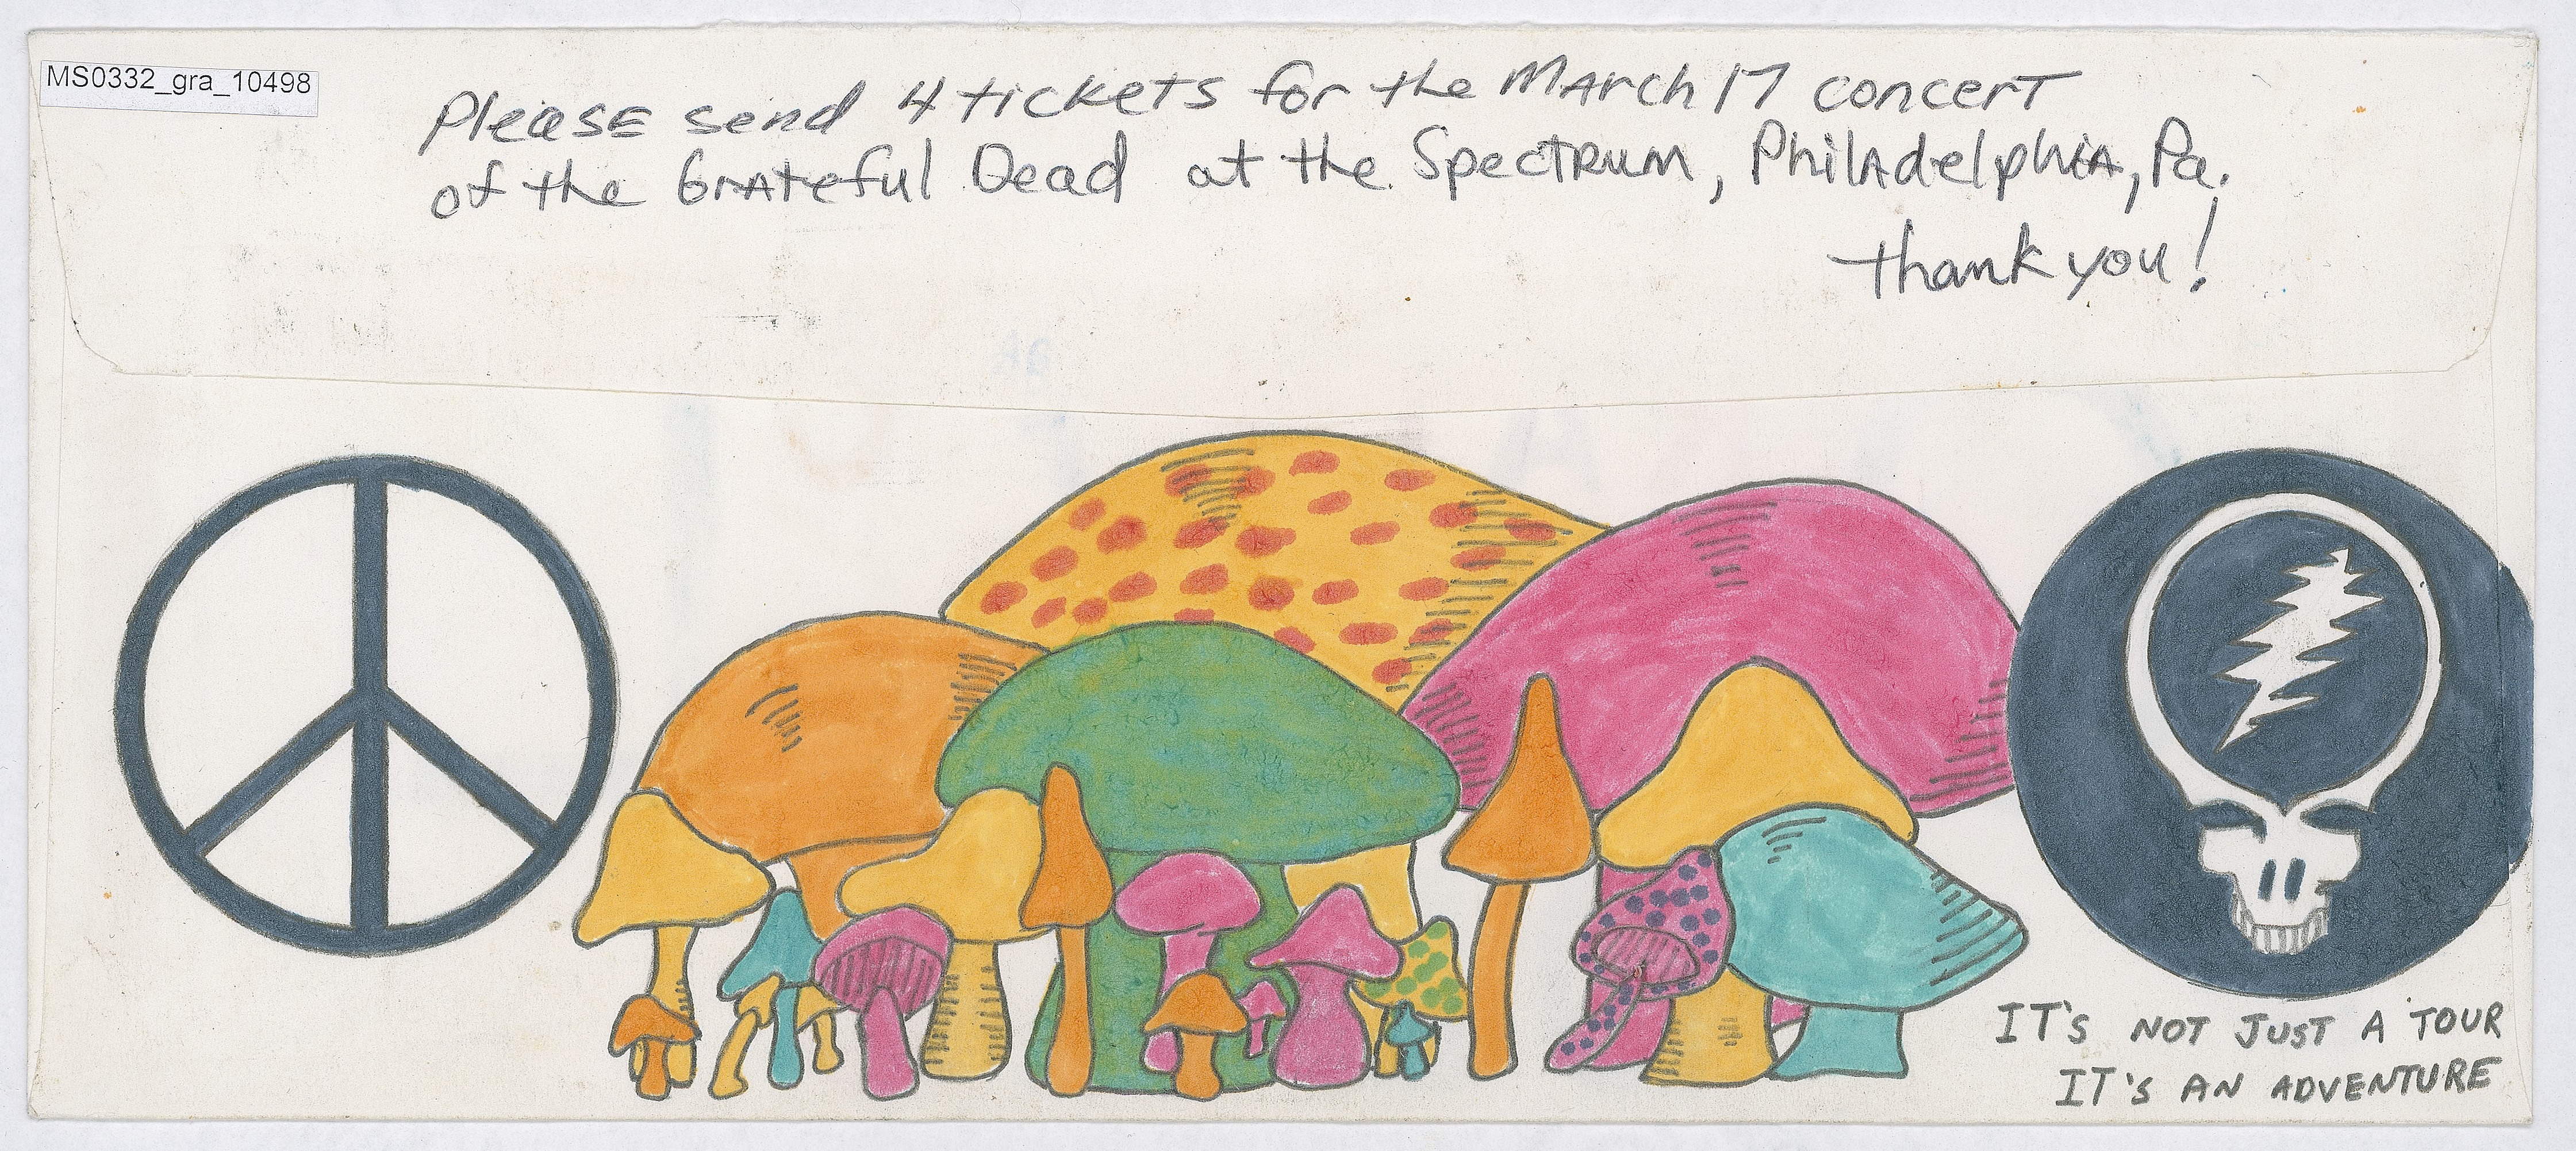 MS0332_gra_10498
Please send 4 tickets for the March 17 concert
of the Grateful Dead at the Spectrum, Philadelphia, Pa.
thank you!
IT'S NOT JUST A TOUR
IT'S AN ADVENTURE